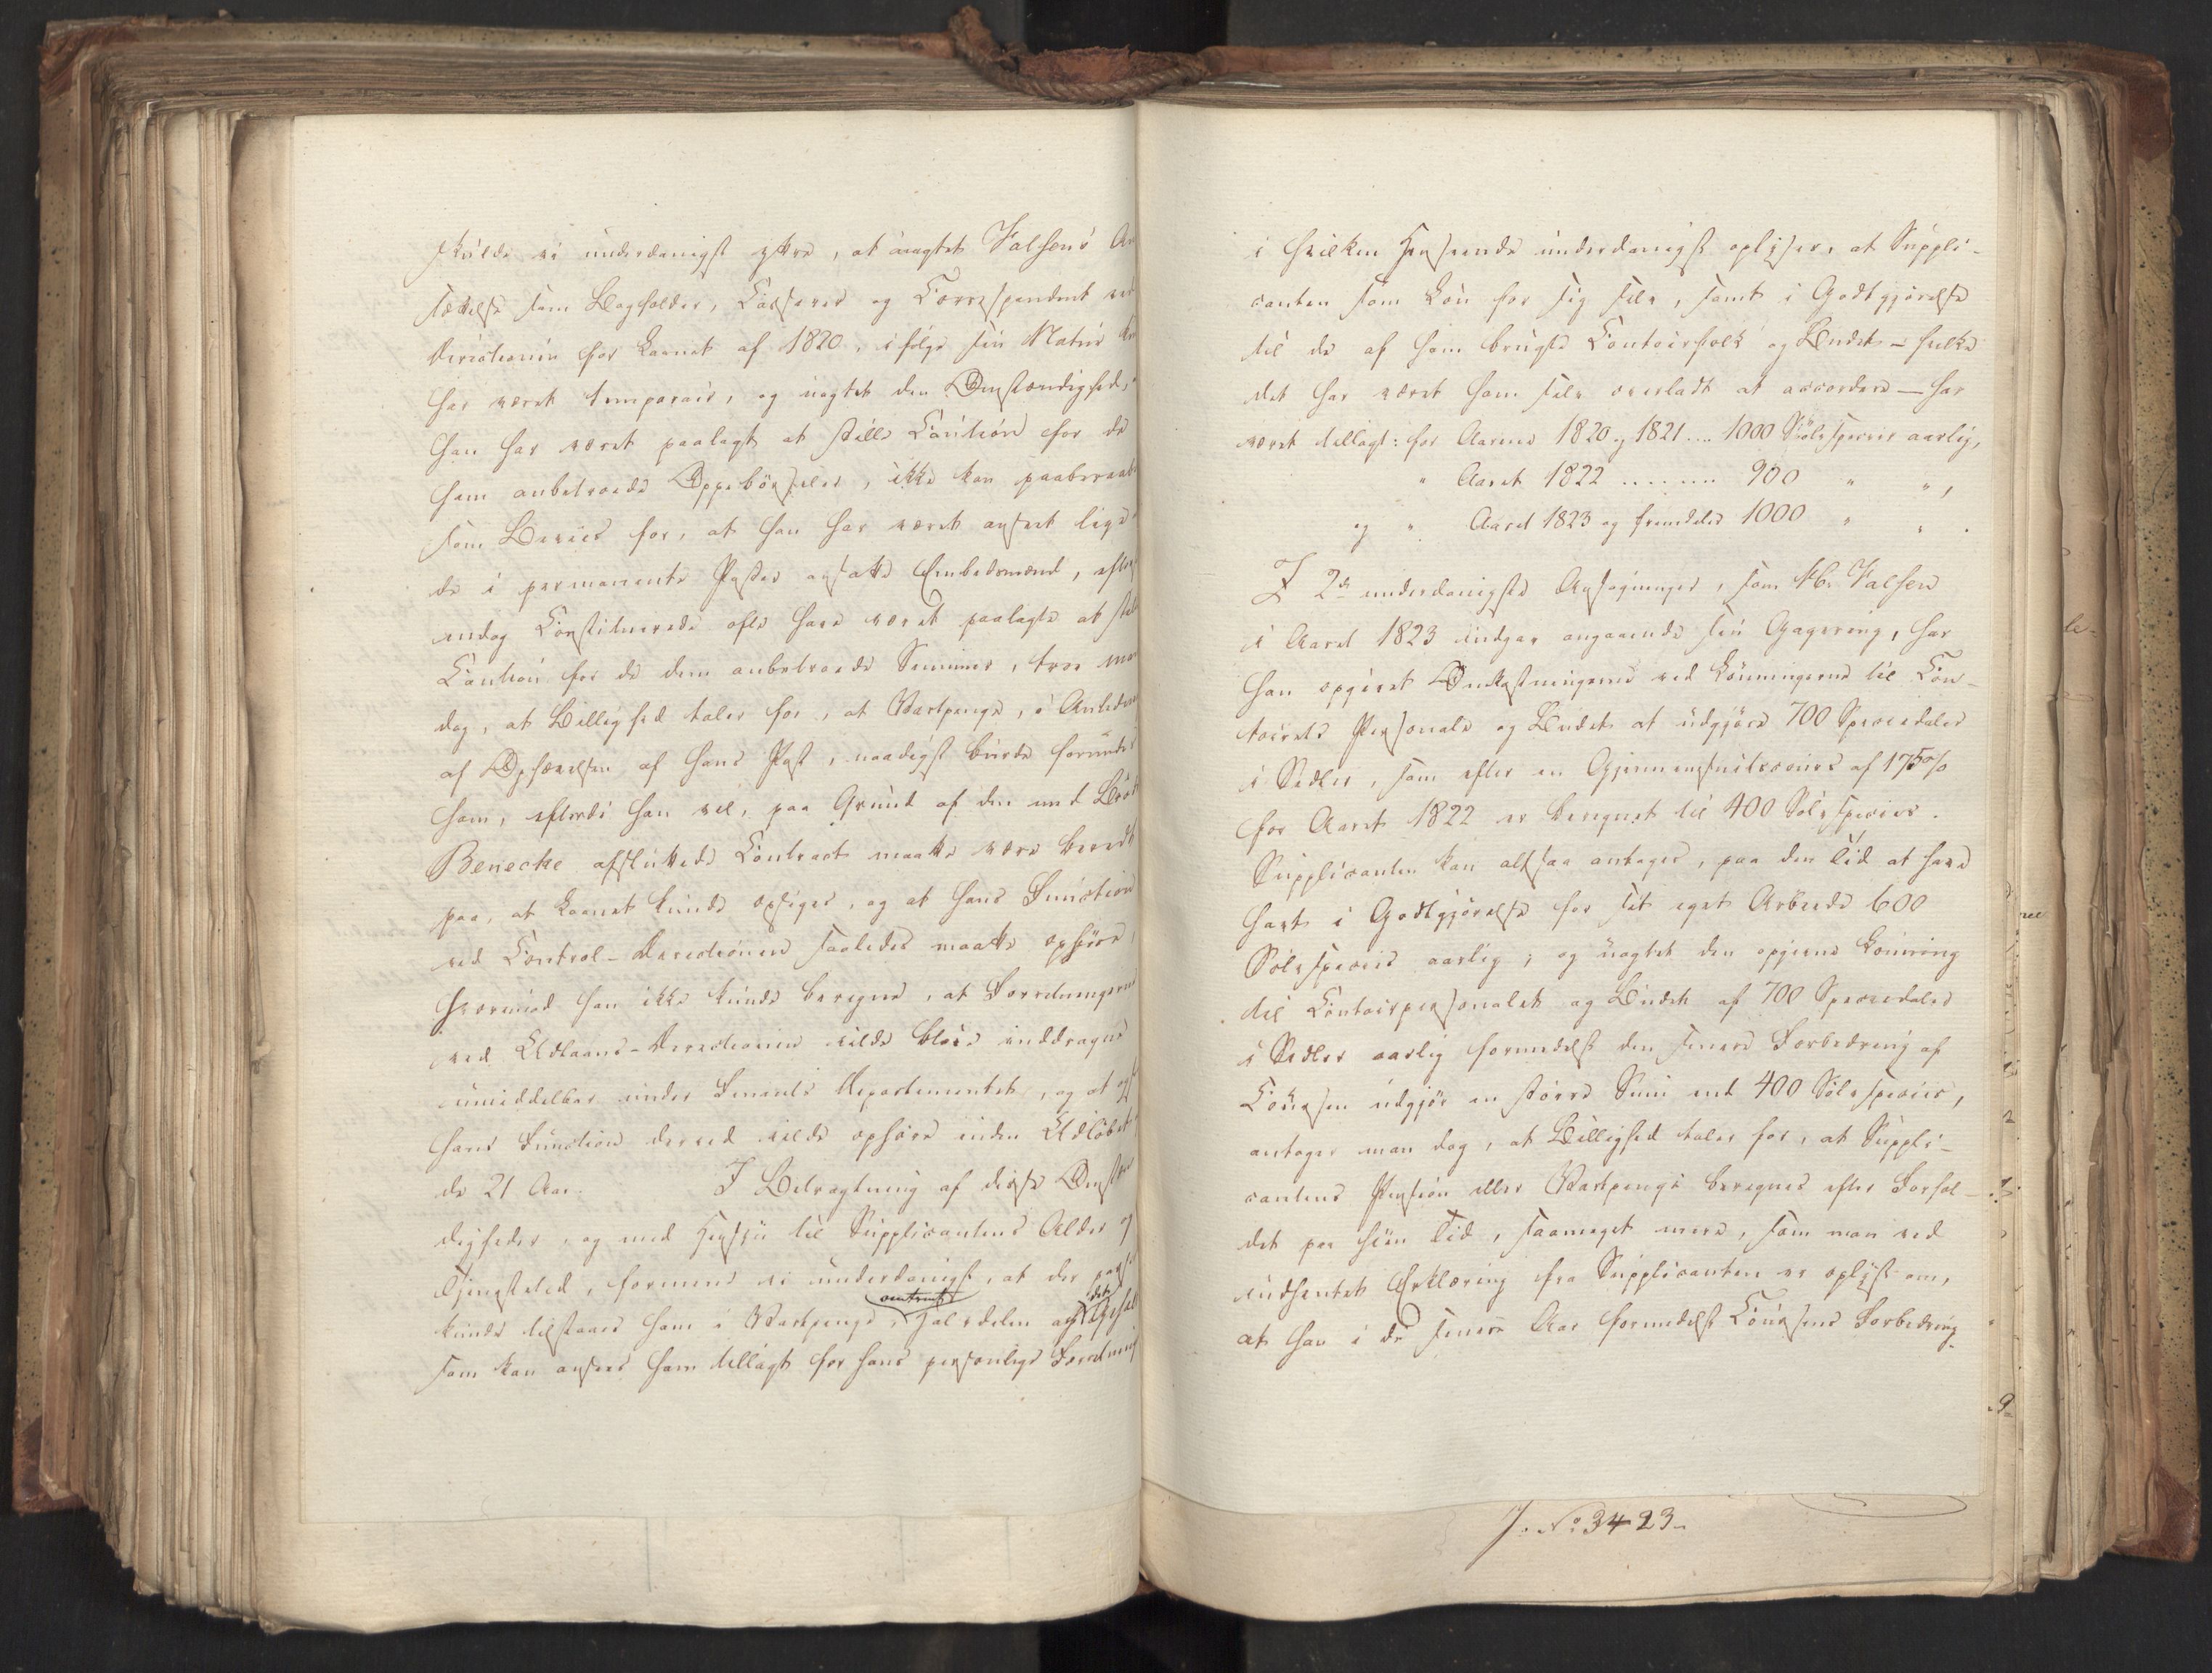 skulde vi underdanigst yttre, at uagtet Falsens An
sættelse som Bogholder, Casserer og Correspondent ved
Directionen for Laanet af 1820, ifølge sin Natur kun
har været temporair, og uagtet den Omstændighed,
han har været paalagt at stille Caution for de
ham anbetroede Oppebørseler, ikke kan paaberaabes
som Beviis for, at han har været anseet lige
de i permanente Poster ansatte Embedsmænd, efter
endog Constituerede ofte have været paalagte at stille
Caution for de dem anbetroede Summer, troe man
dog, at Billighed taler for, at Vartpenge, i Anledn
af Ophævelsen af hans Post, naadigst burde forundes
ham, efterdi han vel, paa Grund af den med
Benecke afsluttede Contract maatte være beredt
paa, at Laanet kunde opsiges, og at hans Function
ved Control-Directionen saaledes maatte ophøre,
hvorimod han ikke kunde beregne, at Forretningerne
ved Udlaans-Directionen vilde blive inddragne
umiddelbar under Finants Departementet, og at
hans Function derved vilde ophøre inden Udløbet
de 21 Aar. I Betragtning af disse Omstæn
digheder, og med Hensyn til Supplicantens Alder og
Tjenestetid, formene vi underdanigst, at der
kunde tilstaaes ham i Vartpenge, omtrent Halvdelen af det
som kan ansees ham tillagt for hans personlige Forretning
i hvilken Henseende underdanigst oplyses, at Suppli-
canten som Løn for sig selv, samt i Godtgjørelse
til de af ham brugte Contoirfolk og Huset – hvilke
det har været ham selv overladt at accordere – har
været tillagt: for Aarene 1820 og 1821 .... 1000 Sølvspecier aarlig,
" Aaret 1822 ........ 900 " ",
og " Aaret 1823 og fremdeles 1000 " " .
I 2de underdanigste Ansøgninger, som Hr. Falsen
i Aaret 1823 indgav angaaende sin Gagering, har
han opgivet Omkostningerne ved Lønningerne til Con-
toirets Personale og Huset at udgjøre 700 Speciedaler
i Sedler, som efter en Gjennemsnitscours af 175%
for Aaret 1822 er beregnet til 400 Sølvspecier.
Supplicanten kan altsaa antages, paa den Tid at have
havt i Godtgjørelse for sit eget Arbeide 600
Sølvspecier aarlig; og uagtet den opgivne Lønning
til Contoirpersonalet og Huset af 700 Speciedaler
i Sedler aarlig formedelst den senere Forbedring af
Coursen udgjør en større Sum end 400 Sølvspecier,
antager man dog, at Billighed taler for, at Suppli-
cantens Pension eller Vartpenge beregnes efter Forhol-
det paa hiin Tid, saameget mere, som man ved
indhentet Erklæring fra Supplicanten er oplyst om,
at han i de senere Aar formedelst Coursens Forbedring
J. No 3423.